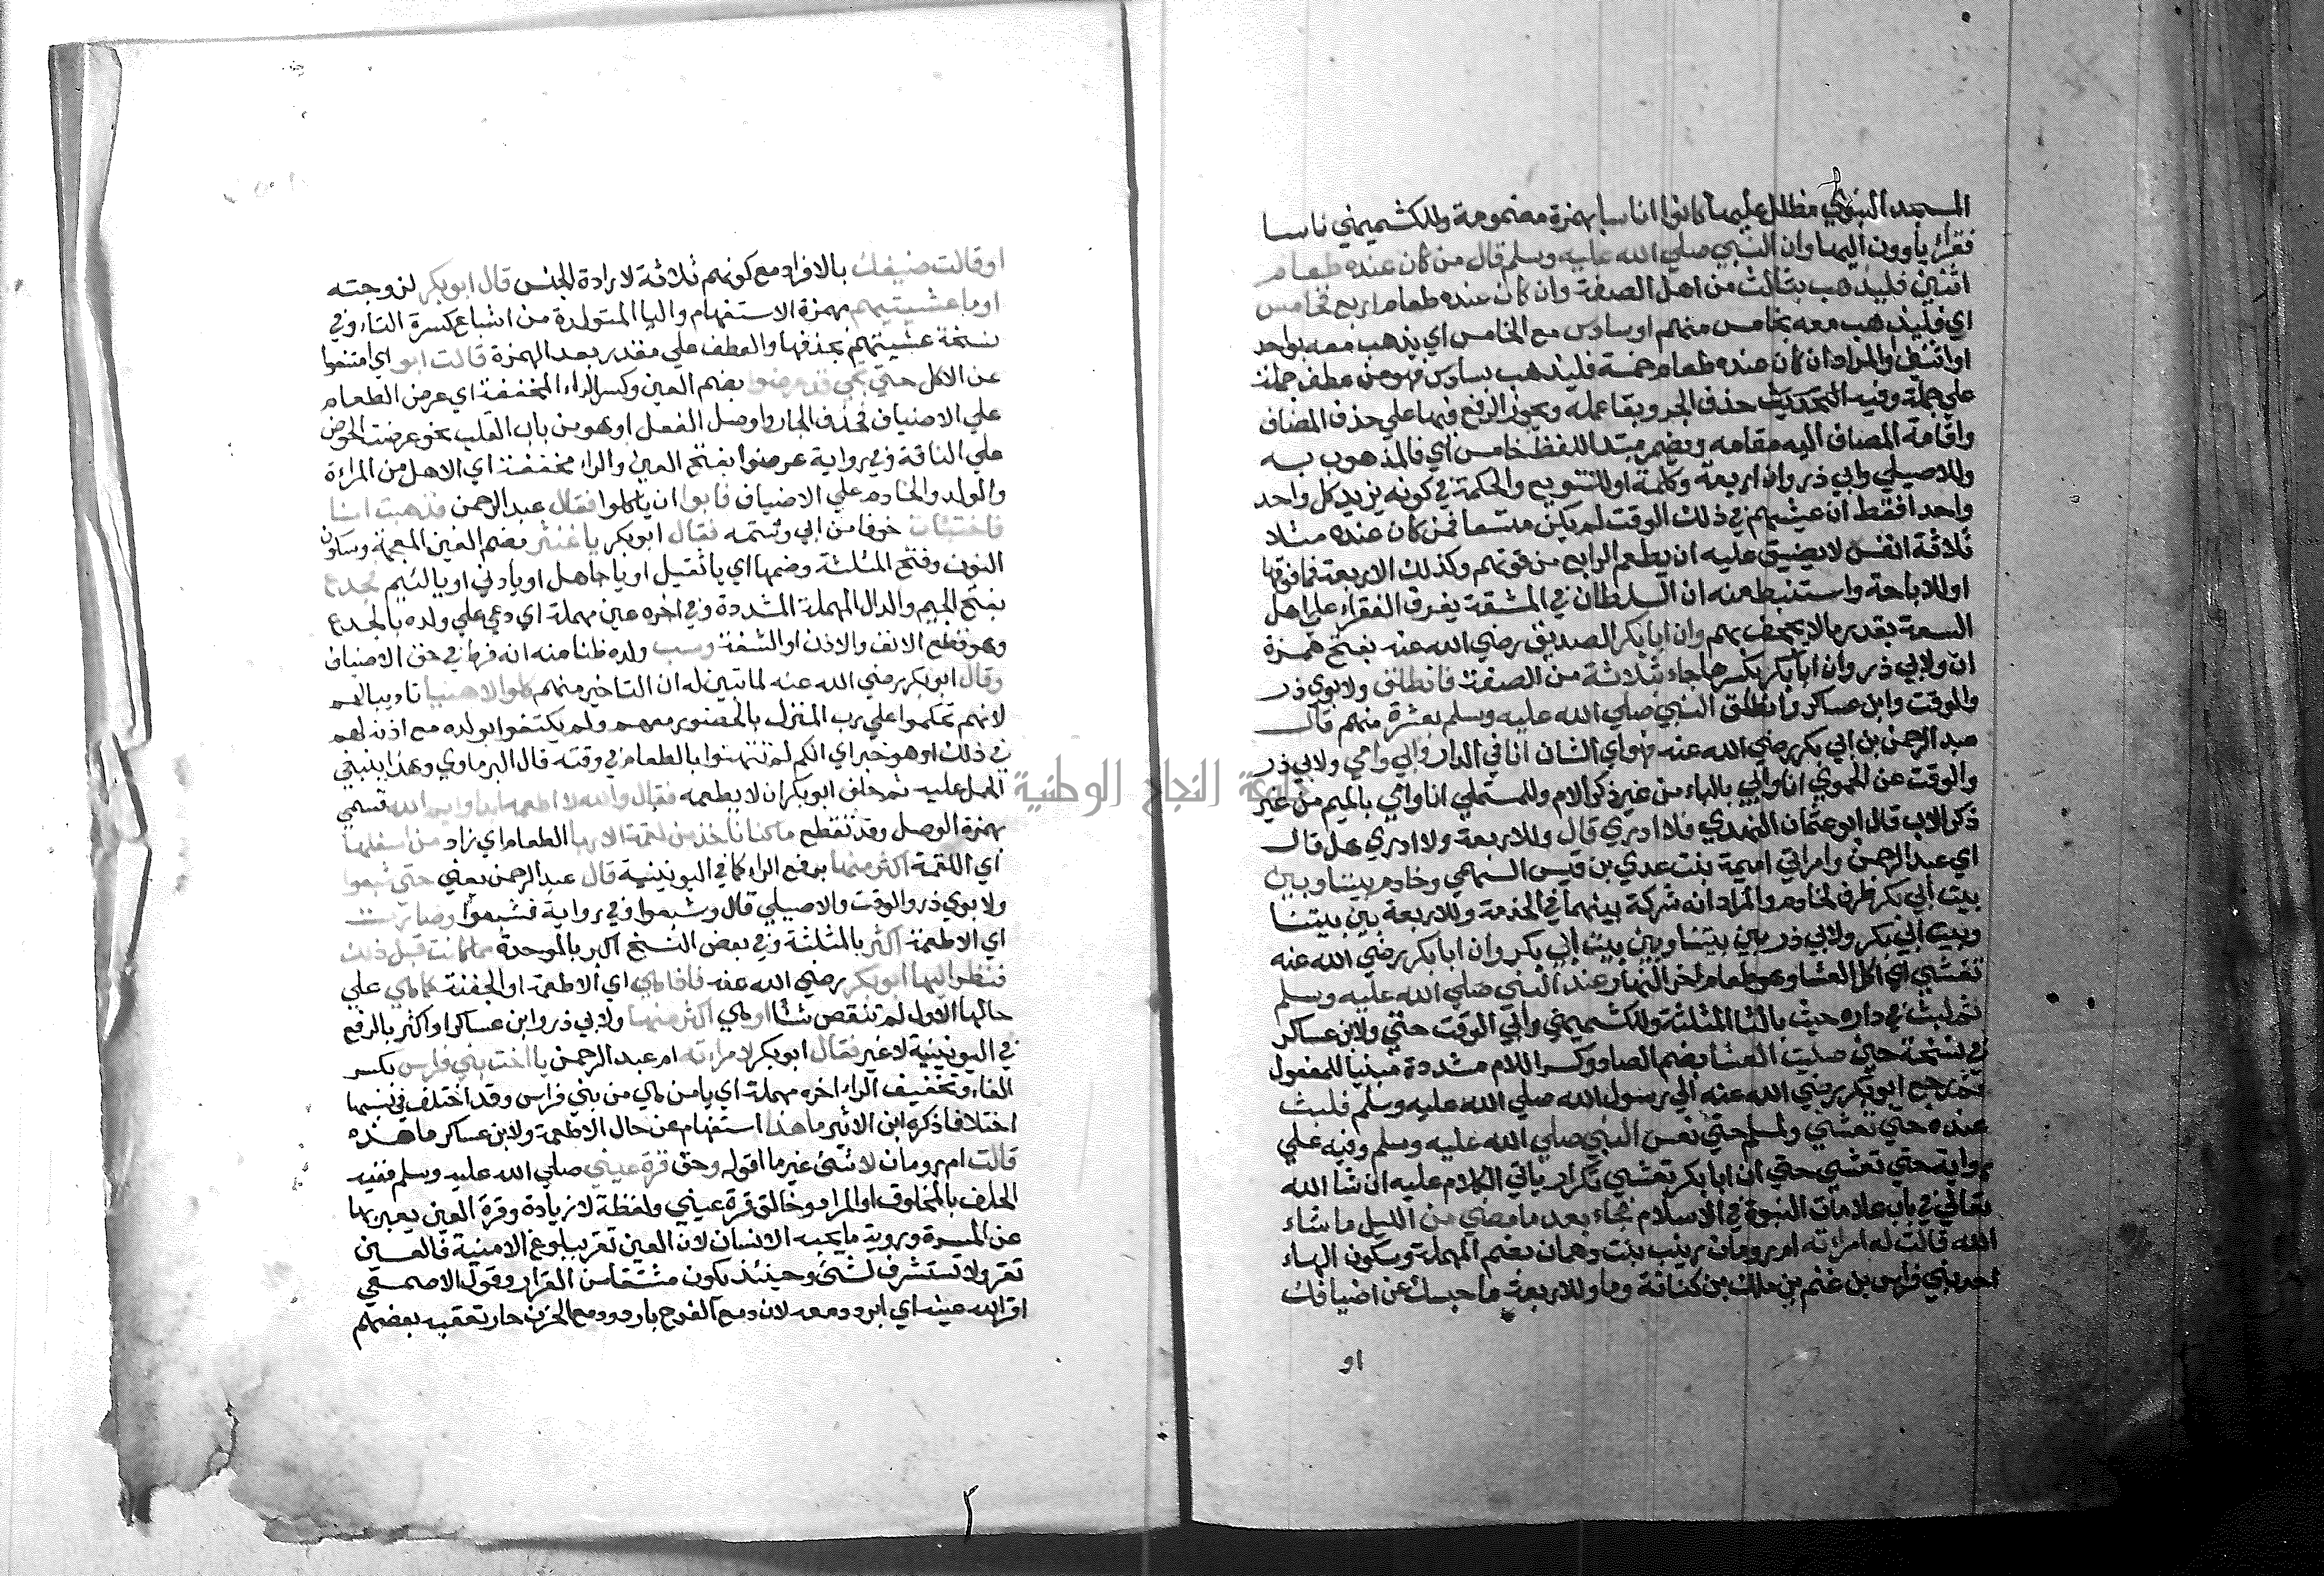 المسجد النبوي مظلل عليها كانوا اناسا بهمزة مضمومة وللكشميهني ناسا
فقراء ياوون اليها وان النبي صلي الله عليه وسلم قال من كان عنده طعام
اثنين فليذهب بثالث من اهل الصفة وان كان عنده طعام اربع فخامس
اي فليذهب معه بخامس منهم او سادس مع الخامس اي يذهب معه بواحد
او اثنين والمراد ان كان عنده طعام خمسة فليذهب بسادس فهو من عطف جملة
علي جملة وفيه حذف الجر وبقا عمله ويجوز الرفع فيهما علي حذف المضاف
واقامة المضاف اليه مقامه ويضمر مبتدا للفظ خامس اي فالمذهوب به
وللاصيلي وابي ذر وان اربعة وكلمة او للتنويع والحكمة في كونه يزيد كل واحد
واحدا فقط ان عيشهم في ذلك الوقت لم يكن متسعا فمن كان عنده مثلا
ثلاثة انفس لا يضيق عليه ان يطعم الرابع من قوتهم وكذلك الاربعة فما فوقها
او للاباحة واستنبط منه ان السلطان في المشقة يفرق الفقراء علي اهل
السعة بقدر ما لا يجحف بهم وان ابا بكر الصديق رضي الله عنه بفتح همزة
ان ولابي ذر وان ابا بكر بكسرها جاء بثلاثة من الصفة فانطلق ولابوي ذر
والوقت وابن عساكر وانطلق النبي صلي الله عليه وسلم بعشرة منهم قال
عبد الرحمن بن ابي بكر رضي الله عنه فهو اي الشان انا في الدار وابي وامي ولابي ذر
والوقت عن الحموي انا وابي بالباء من غير ذكر الام وللمستملي انا وامي بالميم من غير
ذكر الاب قال ابو عثمان النهدي فلا ادري قال وللاربعة ولا ادري هل قال
اي عبد الرحمن وامراتي اميمة بنت عدي بن قيس السهمي وخادم بيننا وبين
بيت ابي بكر ظرف لخادم والمراد انه شركة بينهما في الخدمة وللاربعة بين بيتنا
وبيت ابي بكر ولابي ذر بين بيتنا وبين بيت ابي بكر وان ابا بكر رضي الله عنه
تعشي اي اكل العشا وهو طعام اخر النهار عند النبي صلي الله عليه وسلم
ثم لبث في داره حيث بالثا المثلثة وللكشميهني وابي الوقت حتي ولابن عساكر
في نسخة حين صليت العشا بضم الصاد وكسر اللام مشددة مبنيا للمفعول
ثم رجع ابو بكر رضي الله عنه الي رسول الله صلي الله عليه وسلم فلبث
عنده حتي تعشي ولمسلم حتي نعس النبي صلي الله عليه وسلم وفيه علي
رواية حتي تعشي حتي ان ابا بكر تعشي تكرار ياتي الكلام عليه ان شا الله
تعالي في باب علامات النبوة في الاسلام فجاء بعد ما مضي من الليل ما شاء
الله قالت له امراته ام رومان زينب بنت دهمان بضم المهملة وسكون الهاء
احد بني فراس بن غنم بن مالك بن كنانة وما وللاربعة ما حبسك عن اضيافك
او
او قالت ضيفك بالافراد مع كونهم ثلاثة لارادة الجنس قال ابو بكر لزوجته
اوما عشيتيهم بهمزة الاستفهام واليا المتولدة من اشباع كسرة التاء وفي
نسخة عشيتهم بحذفها والعطف علي مقدر بعد الهمزة قالت ابو اي امتنعوا
عن الاكل حتي تجي قد عرضوا بضم العين وكسر الراء المخففة اي عرض الطعام
علي الاضياف فحذف الجار واوصل الفعل او هو من باب القلب نحو عرضت الحوض
علي الناقة وفي رواية عرضوا بفتح العين والراء مخففة اي الاهل من المراة
والولد والخادم علي الاضياف فابوا ان ياكلوا فقال عبد الرحمن فذهبت انا
فاختبات خوفا من ابي وشتمه فقال ابو بكر يا غنثر بضم الغين المعجمة وسكون
النون وفتح المثلثة وضمها اي يا ثقيل او يا جاهل او يا دني او يا لئيم فجدع
بفتح الجيم والدال المهملة المشددة وفي اخره عين مهملة اي دعي علي ولده بالجدع
وهو قطع الانف والاذن او الشفة وسب ولده ظنا منه انه فرط في حق الاضياف
وقال ابو بكر رضي الله عنه لما تبين له ان التاخير منهم كلوا لا هنيا تاديبا لهم
لانهم تحكموا علي رب المنزل بالحضور معهم ولم يكتفوا بولده مع اذنه لهم
في ذلك او هو خبر اي انكم لم تتهنوا بالطعام في وقته قال البرماوي وهذا ينبغي
الحمل عليه ثم حلف ابو بكر ان لا يطعمه فقال والله لا اطعمه ابدا وايم الله قسمي
بهمزة الوصل وقد تقطع ما كنا ناخذ من لقمة الا ربا الطعام اي زاد من اسفلها
اي اللقمة اكثر منها برفع الراء كما في اليونينية قال عبد الرحمن يعني حتي شبعوا
ولابوي ذر والوقت والاصيلي قال وشبعوا وفي رواية فشبعوا وصارت
اي الاطعمة اكثر بالمثلثة وفي بعض النسخ اكبر بالموحدة مما كانت قبل ذلك
فنظر اليها ابو بكر رضي الله عنه فاذا هي اي الاطعمة او الجفنة كما هي علي
حالها الاول لم تنقص شيئا او هي اكثر منها ولابي ذر وابن عساكر او اكثر بالرفع
في اليونينية لا غير فقال ابو بكر لامراته ام عبد الرحمن يا اخت بني فراس بكسر
الفاء وتخفيف الراء اخره مهملة اي يا من هي من بني فراس وقد اختلف في نسبها
اختلافا ذكره ابن الاثير ما هذا استفهام عن حال الاطعمة ولابن عساكر ما هذه
قالت ام رومان لا شئ غير ما اقوله وحق قرة عيني صلي الله عليه وسلم ففيه
الحلف بالمخلوق او المراد وخالق قرة عيني ولفظة لا زيادة وقرة العين يعبر بها
عن المسرة وروية ما يحبه الانسان لان العين تقر ببلوغ الامنية فالعين
تقر ولا تستشرف لشئ وحينئذ يكون مشتقا من القرار وقول الاصمعي
اقر الله عينه اي ابرد دمعه لان دمع الفرح بارد ودمع الحزن حار تعقبه بعضهم
جامعة النجاح الوطنية